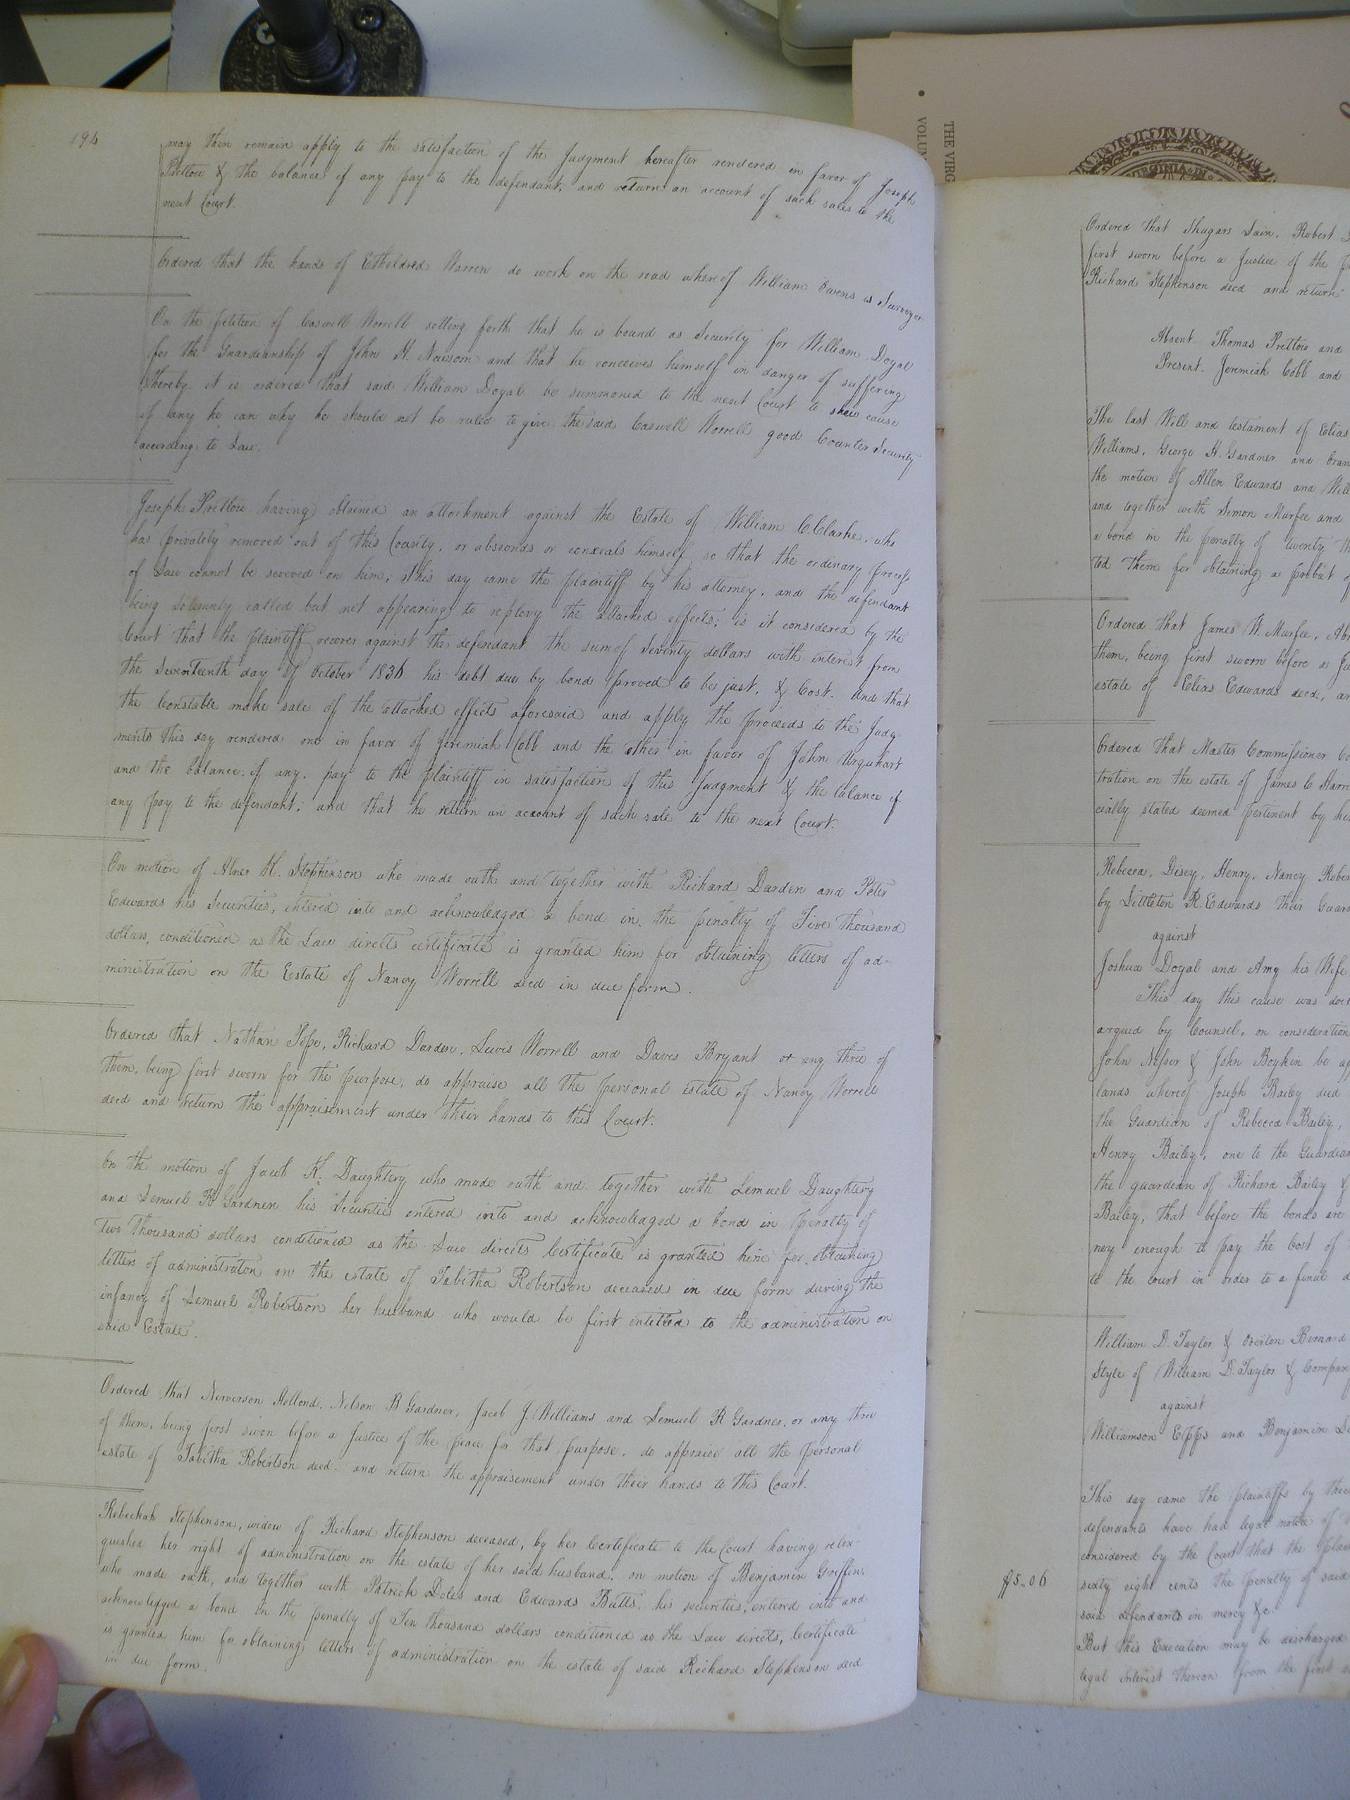 194
may then remain apply to the satisfaction of the Judgment hereafter rendered in favor of Joseph
Prettow & the balance if any pay to the defendant, and return an account of such sales to the
next Court.
Ordered that the hands of Etheldred Warren do work on the road whereof William Owens is Surveyor
On the petition of Caswell Worrell setting forth that he is bound as Security for William Doyal
for the Guardianship of John H. Newsom and that he conceives himself in danger of suffering
thereby it is ordered that said William Doyal be summoned to the next Court to shew cause
if any he can why he should not be ruled to give the said Caswell Worrell good Counter Security
according to Law.
Joseph Prettow having obtained an attachment against the Estate of William C. Clarke, who
has privately removed out of this County, or absconds or conceals himself so that the ordinary process
of Law cannot be served on him, this day came the plaintiff by his attorney, and the defendant
being solemnly called but not appearing to replevy the attached effects; is it considered by the
Court that the plaintiff recover against the defendant the sum of Seventy dollars with interest from
the Seventeenth day of October 1836 his debt due by bond proved to be just, & Cost. And that
the Constable make sale of the attached effects aforesaid and apply the proceeds to the Judg
ments this day rendered one in favor of Jeremiah Cobb and the other in favor of John Urquhart
and the balance, if any, pay to the plaintiff in satisfaction of this Judgment & the balance if
any pay to the defendant; and that he return an account of such sale to the next Court.
On motion of Abner H. Stephenson who made oath and together with Richard Darden and Peter
Edwards his Securities, entered into and acknowledged a bond in the penalty of Five thousand
dollars, conditioned as the Law directs certificate is granted him for obtaining letters of ad-
ministration on the Estate of Nancy Worrell decd in due form.
Ordered that Nathan Pope, Richard Darden, Lewis Worrell and Davis Bryant or any three of
them, being first sworn for the purpose, do appraise all the personal estate of Nancy Worrell
decd and return the appraisement under their hands to this Court.
On the motion of Jacob K. Daughtery who made oath and together with Lemuel Daughtery
and Lemuel R Gardner his Securities entered into and acknowledged a bond in penalty of
two thousand dollars conditioned as the Law directs Certificate is granted him for obtaining
letters of administration on the estate of Tabitha Robertson deceased in due form during the
infancy of Lemuel Robertson her husband who would be first intitled to the administration on
said Estate.
Ordered that Holland, Nelson B Gardner, Jacob J. Williams and Lemuel R Gardner, or any three
of them, being first sworn before a Justice of the peace for that purpose, do appraise all the personal
estate of Tabitha Robertson decd. and return the appraisement under their hands to this Court.
Rebeckah Stephenson, widow of Richard Stephenson deceased, by her Certificate to the Court having relin-
quished her right of administration on the estate of her said husband, on motion of Benjamin Griffin,
who made oath, and together with Patrick Doles and Edwards Butts, his securities, entered into and
acknowledged a bond in the penalty of Ten thousand dollars conditioned as the Law directs, Certificate
is granted him for obtaining letters of administration on the estate of said Richard Stephenson decd
in due form.
THE VIRG
VOLU
VIRGINIA IN
Ordered that Shugars Lain, Robert
first sworn before a Justice of the
Richard Stephenson decd and return
Absent Thomas Prettow and
Present. Jeremiah Cobb and
The last Will and testament of Elias
Williams, George H. Gardner and
the motion of Allen Edwards and Will
and together with Simon Murfee and
a bond in the penalty of twenty
ted them for obtaining a probat of
Ordered that James W. Murfee,
them, being first sworn before a
estate of Elias Edwards decd,
Ordered that Master Commissioner
tration on the estate of James C
cially stated deemed pertinent by
Rebecca, Disey, Henry, Nancy
by Littleton R. Edwards their Guar
against
Joshua Doyal and Amy his Wife
This day this cause was
argued by Counsel, on consideration
John Nelson & John Boykin be
lands whereof Joseph Bailey died
the Guardian of Rebecca Bailey,
Henry Bailey, one to the Guardian
the guardean of Richard Bailey &
Bailey, that before the bonds are
ney enough to pay the Cost of
to the court in order to a final
William D. Taylor & Overton Bernard
Style of William D. Taylor & Company
against
Williamson Epps and Benjamin
This day came the plaintiffs by their
defendants have had legal notice of
considered by the Court that the plain
$5.06 sixty eight cents the penalty of said
said defendants in mercy &c.
But this Execution may be discharged
legal interest thereon from the first